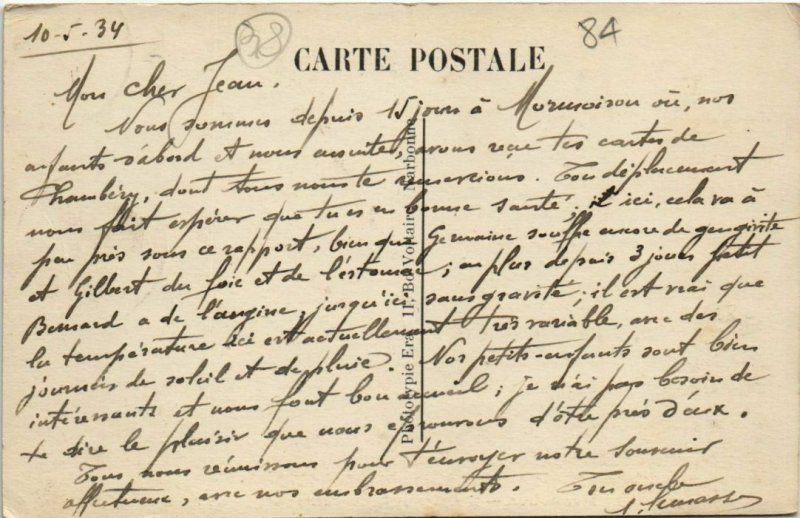 10-5-34
38
84
CARTE POSTALE
Mon cher Jean.
Nous sommes depuis 15 jours à où, nos
enfants d'abord et nous ensuite, avons reçu tes cartes de
Chambéry, dont tous nous te remercions. Ton déplacement
nous fait espérer que tu es en bonne santé; et ici, cela va à
peu près sous ce rapport, bien que Germaine souffre encore de gengivite
et Gilbert du foie et de l'estomac; en plus depuis 3 jours petit
Bernard a de l'angine, jusqu'ici sans gravité; il est vrai que
la température ici est actuellement très variable, avec des
journées de soleil et de pluie. Nos petits-enfants sont bien
intéressants et nous font bon accueil; je n'ai pas besoin de
te dire le plaisir que nous éprouvons d'être près d'eux.
Tous nous réunissons pour t'envoyer notre souvenir
affectueux, avec nos embrassements. Ton oncle
Phototypie Era 11, Bd Voltaire Narbonne